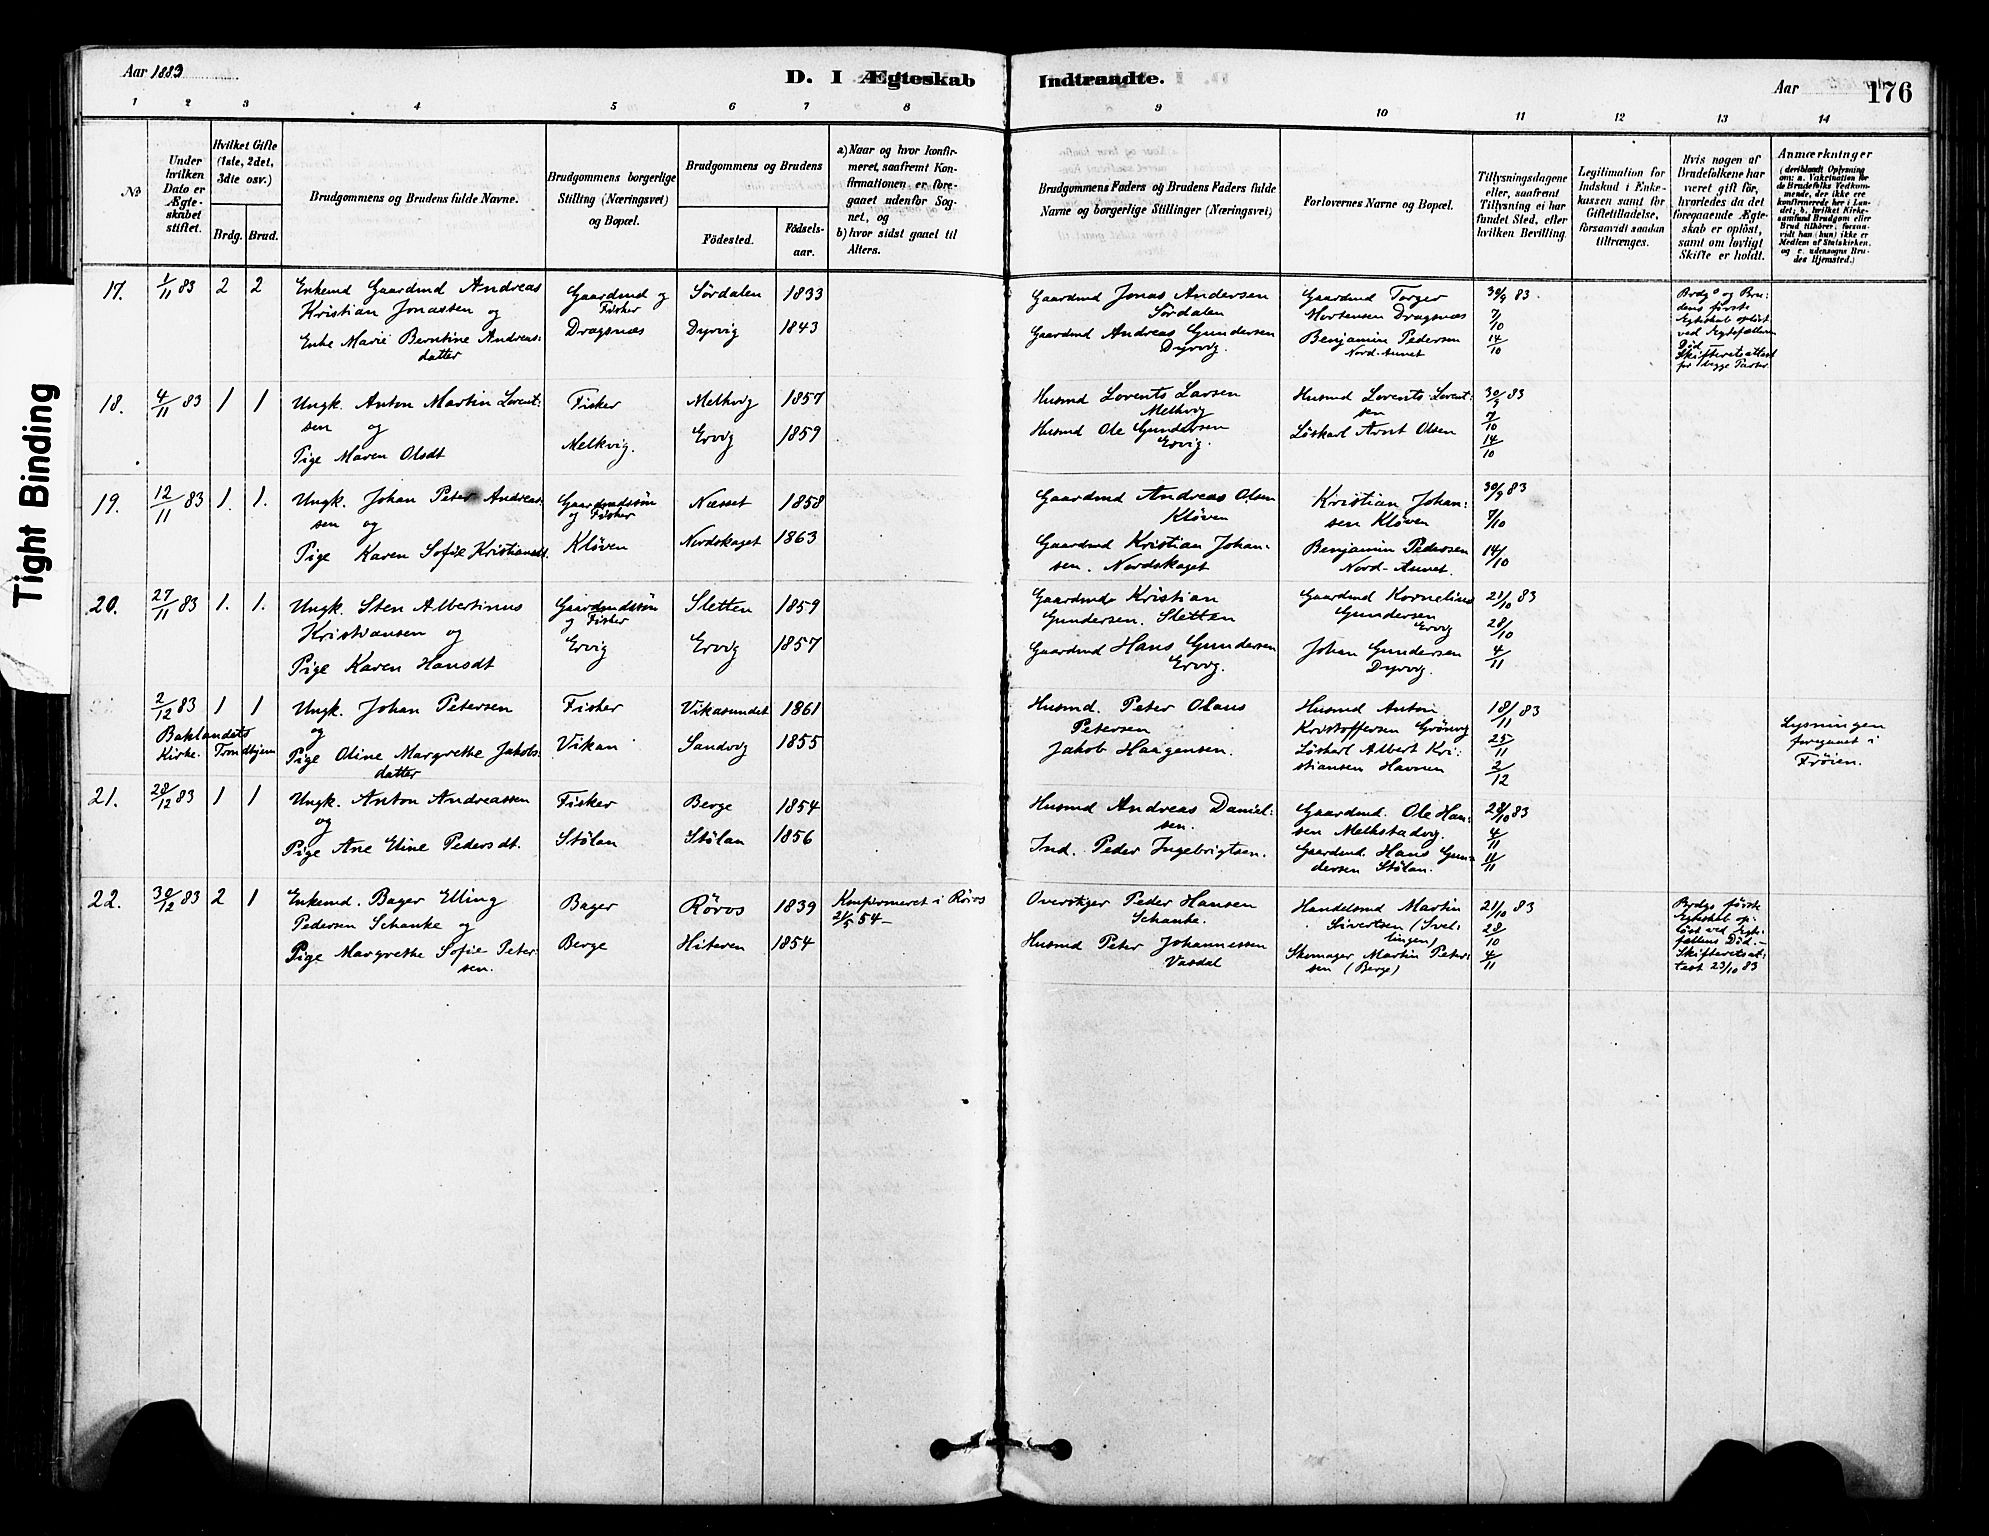 Tight Binding
Aar 1883
D. I Ægteskab Indtraadte.
Aar
176
1 2 3 4 5 6 7 8 9 10 11 12 13 14
No
Under hvilken Dato er Ægteskabet stiftet.
Hvilket Gifte (1ste, 2det, 3die osv.)
Brdg. Brud.
Brudgommens og Brudens fulde Navne.
Brudgommens borgerlige Stilling (Næringsvei) og Bopæl.
Brudgommens og Brudens
Födested.
Födsels-aar.
a) Naar og hvor konfirmeret, saafremt Konfirmationen er foregaaet udenfor Sognet, og
b) hvor sidst gaaet til Alters.
Brudgommens Faders og Brudens Faders fulde Navne og borgerlige Stillinger (Næringsvei)
Forlovernes Navne og Bopæl.
Tillysningsdagene eller, saafremt Tillysning ei har fundet Sted, efter hvilken Bevilling.
Legitimation for Indskud i Enkekassen samt for Giftetilladelse, forsaavidt saadan tiltrænges.
Hvis nogen af Brudefolkene har været gift för, hvorledes da det foregaaende Ægteskab er oplöst, samt om lovligt Skifte er holdt.
Anmærkninger
17. 1/11 83 2 2
Enkemd Gaardmd Andreas
Kristian Jonassen og
Enke Marie Berntine Andreas-
datter
Gaardmd og
Fisker
Dragsnæs
Sørdalen 1833
Dyrvig 1843
Gaardmd Jonas Andersen
Sørdalen
Gaardmd Andreas Gundersen
Dyrvig.
Gaardmd Torger
Mortensen Dragsnæs
Benjamin Pedersen
30/9 83
7/10
14/10
Brdg.s og Bru-
dens første
Egteskab opløst
ved Egtefællens
Død.
Skifteretsattest
for begge Parter
18. 4/11 83 1 1
Ungk. Anton Martin Lorent-
sen og
Pige Maren Olsdt
Fisker
Melkvig.
Melkvig 1857
Ervig 1859
Husmd Lorents Larsen
Melkvig
Husmd Ole Gundersen
Ervig.
Husmd Lorents Lorent-
sen
Løskarl Arnt Olsen
30/9 83
7/10
14/10
19. 12/11 83 1. 1.
Ungk. Johan Peter Andreas-
sen og
Pige Karen Sofie Kristiansdt.
Gaardmdssøn
og Fisker
Kløven
Næsset 1858
Nordskaget 1863
Gaardmd Andreas Olsen
Kløven
Gaardmd Kristian Johan-
sen. Nordskaget
Kristian Johan-
sen Kløven
Benjamin Pedersen
30/9 83
7/10
14/10
20. 27/11 83 1. 1.
Ungk. Sten Albertinus
Kristiansen og
Pige Karen Hansdt
Gaardmdssøn
og Fisker
Ervig
Sletten 1859
Ervig 1857
Gaardmd Kristian
Gundersen. Sletten
Gaardmd Hans Gundersen
Ervig.
Gaardmd Kornelius
Gundersen
Ervig
Johan Gundersen
Dyrvig.
21/10 83
28/10
4/11
2/12 83 1 1
Baklandets
Kirke. Trondhjem
Ungk. Johan Petersen
og
Pige Oline Margrethe Jakobs-
datter
Fisker
Vikan
Vikasundet 1861
Sandvig 1855
Husmd. Peter Olaus
Petersen
Jakob Haagensen.
Husmd Anton
Kristoffersen Grønvig
Løskarl Albert Kri-
stiansen Havnen
18/11 83
25/11
2/12
Lysningen
foregaaet i
Frøien.
21. 28/12 83 1 1
Ungk. Anton Andreassen
og
Pige Ane Eline Pedersdt.
Fisker
Stølan
Berge 1854
Stølan 1856
Husmd Andreas Daniel-
sen.
Ind. Peder Ingebrigtsen.
Gaardmd. Ole Han-
sen Melkstadvig.
Gaardmd. Hans Gun-
dersen Stølan.
28/10 83
4/11
11/11
22. 30/12 83 2 1
Enkemd. Bager Elling
Pedersen Schanke og
Pige Margrethe Sofie Peter-
sen.
Bager
Berge
Røros 1839
Hiteren 1854
Konfirmeret i Røros
21/5 54 —
Overstiger Peder Hansen
Schanke.
Husmd Peter Johannessen
Vasdal
Handelsmd Martin
Sivertsen (Svel-
lingen)
Skomager Martin Peter-
sen (Berge)
21/10 83
28/10
4/11
Brdgs første
Egteskab op-
løst ved Egte-
fællens Død. —
Skifteretsat-
test 23/10 83